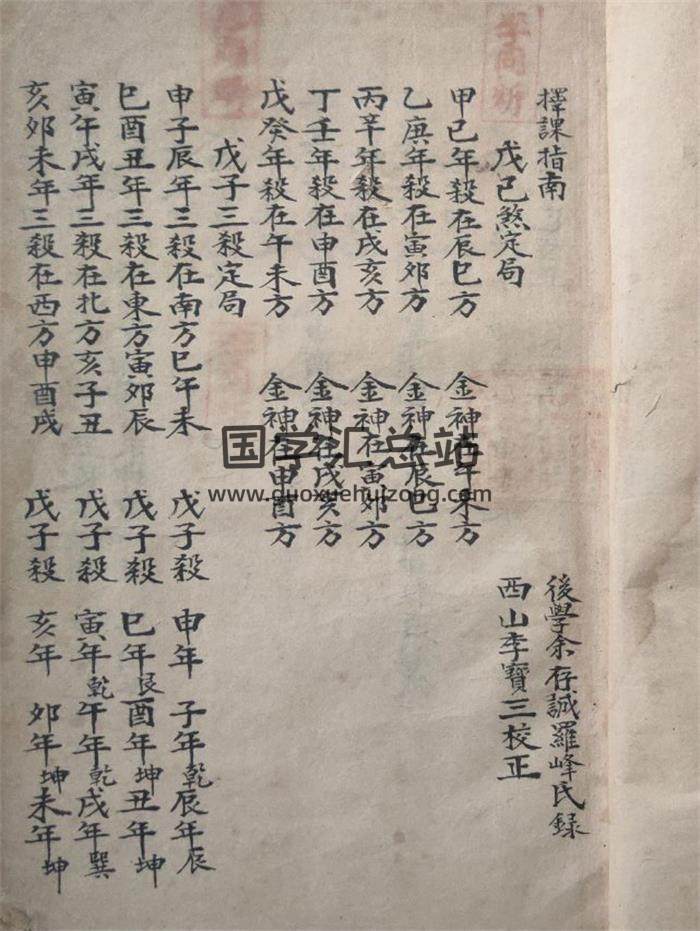 擇課指南
後學余存誠羅峰氏錄
戊己煞定局
西山李寶三校正
甲己年殺在辰巳方 金神在午未方
乙庚年殺在寅卯方 金神在辰巳方
丙辛年殺在戌亥方 金神在寅卯方
丁壬年殺在申酉方 金神在戌亥方
戊癸年殺在午未方 金神在申酉方
戊子三殺定局
申子辰年三殺在南方巳午未 戊子殺 申年 子年乾 辰年辰
巳酉丑年三殺在東方寅卯辰 戊子殺 巳年艮 酉年坤 丑年坤
寅午戌年三殺在北方亥子丑 戊子殺 寅年乾 午年乾 戌年巽
亥卯未年三殺在西方申酉戌 戊子殺 亥年 卯年坤 未年坤
国学汇总站
www.guoxuehuizong.com